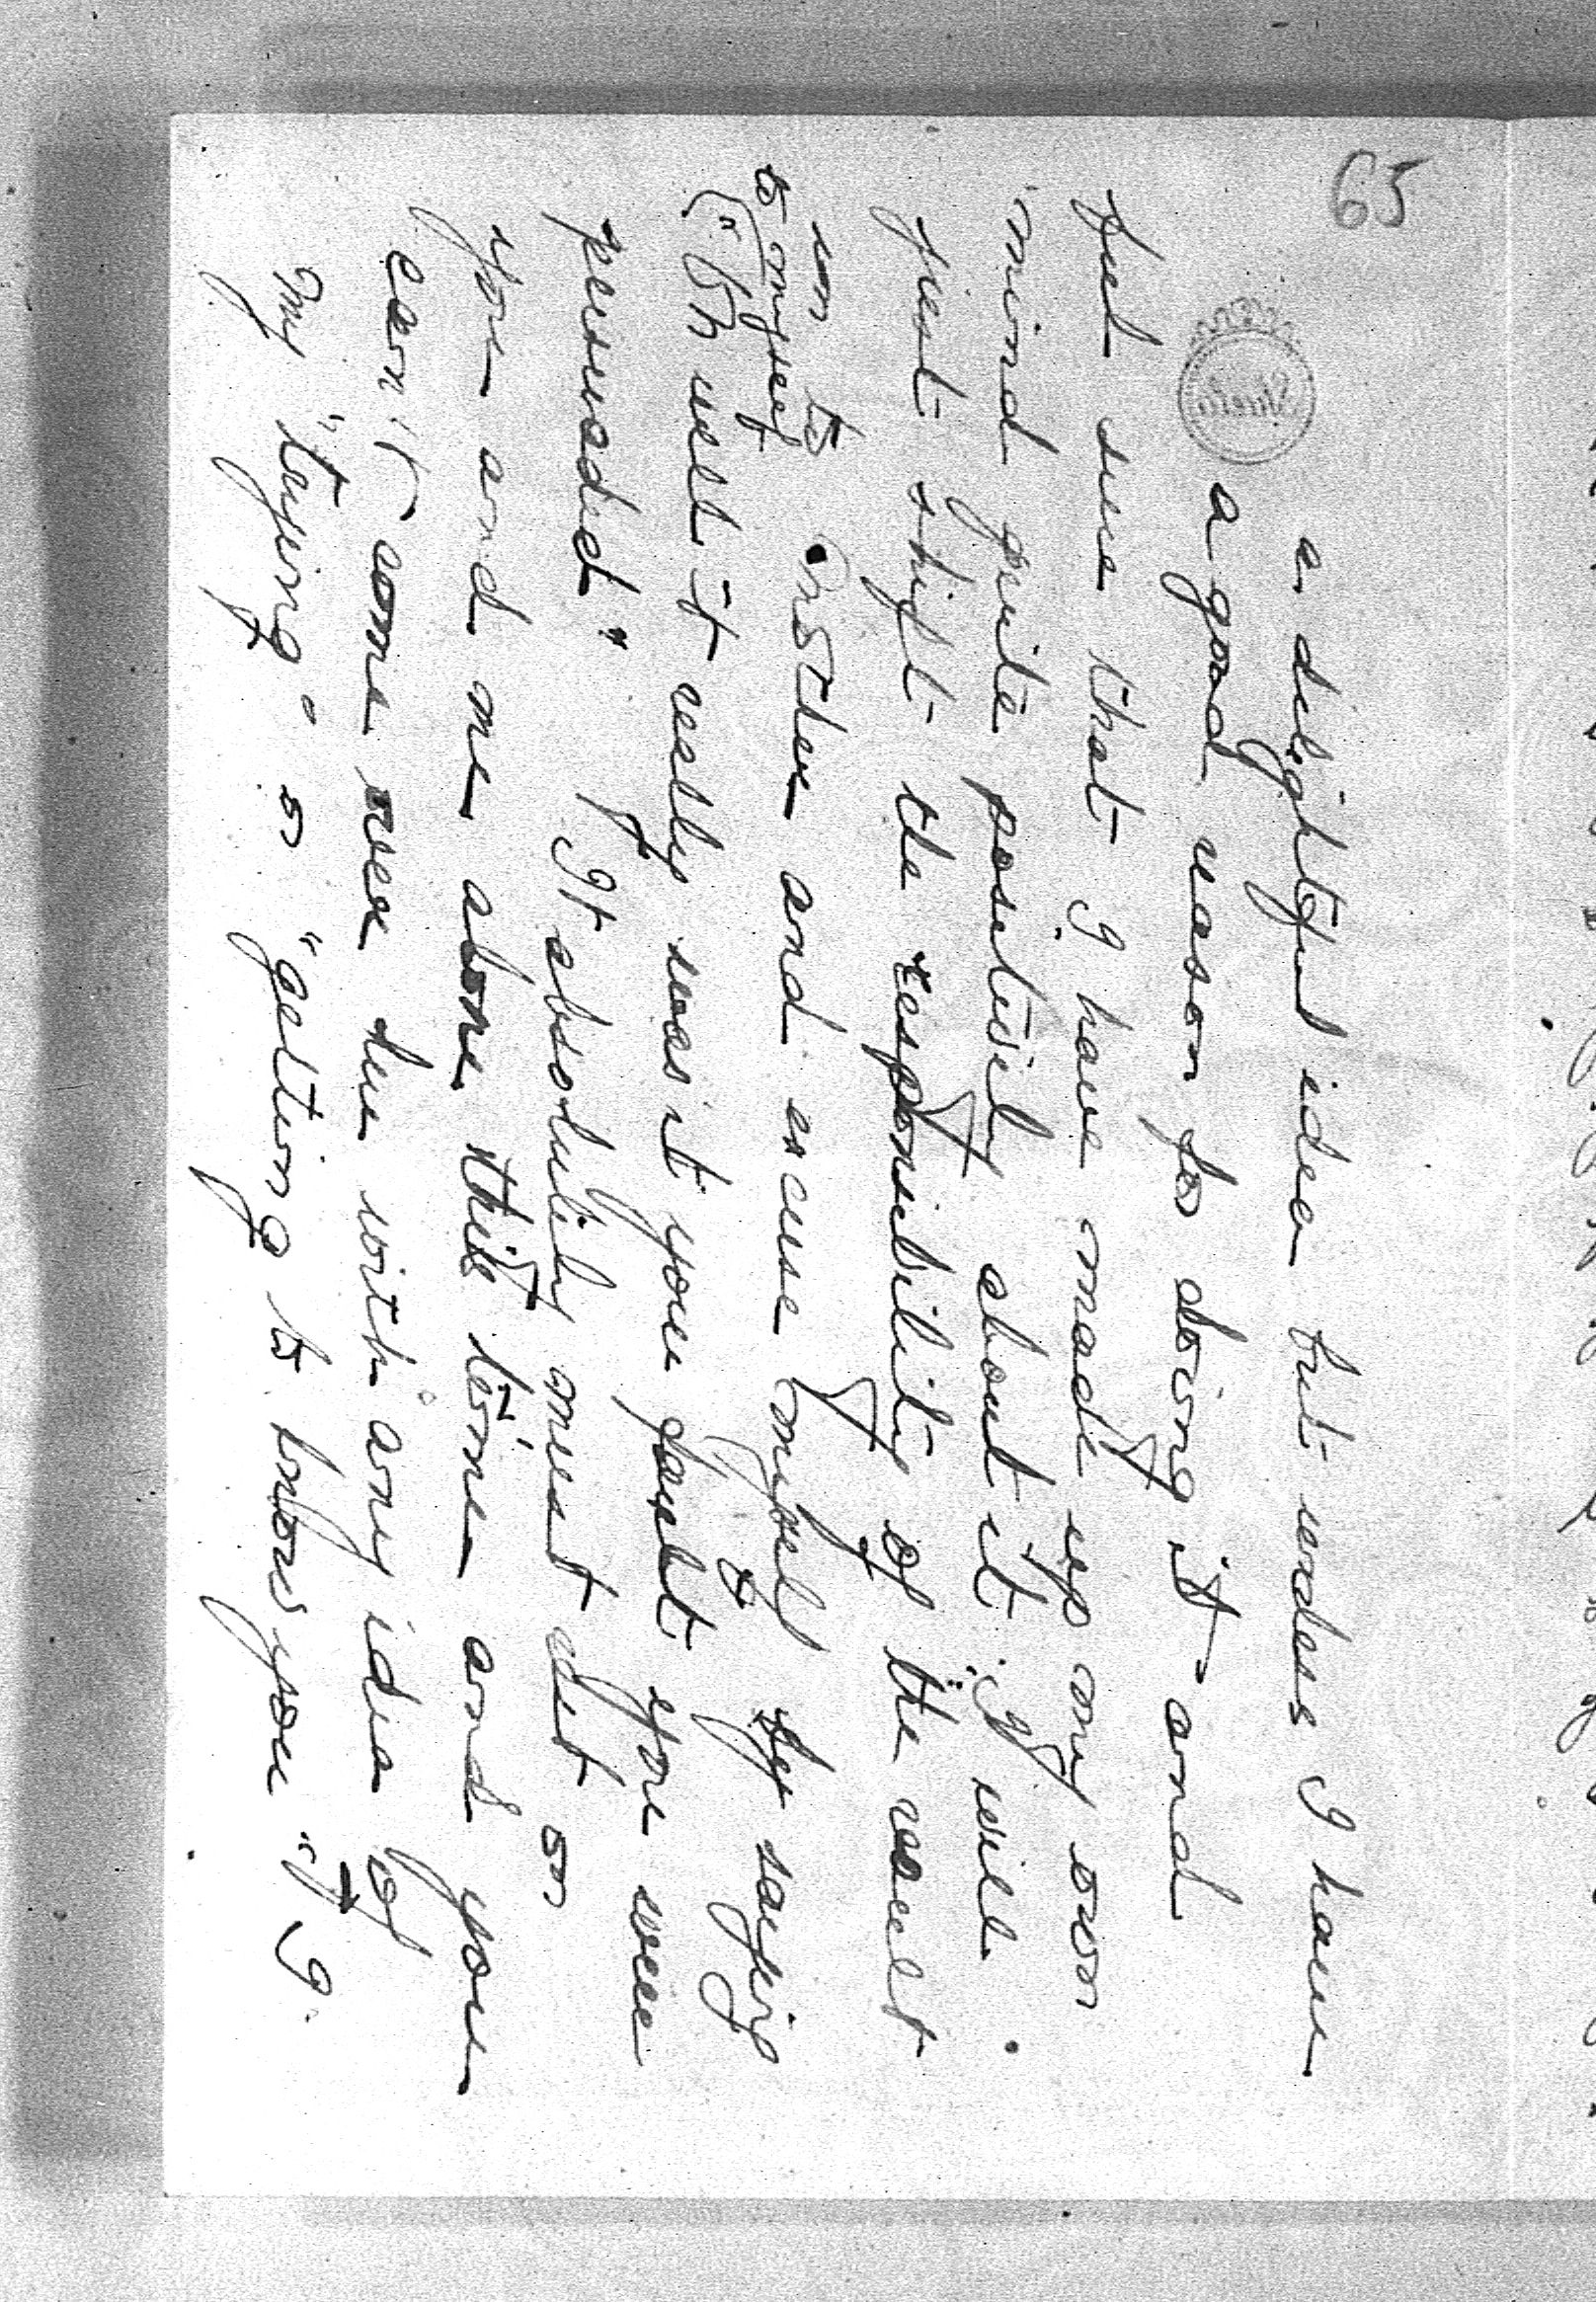 65
Sheila
a delightful idea but unless I have
a good reason for doing it and
feel sure that I have made up my own
mind quite positively about it I will
just shift the responsibility of the result
on to another and excuse myself by saying
to myself
("Oh well it really wasn't your fault you were
persuaded" It absolutely must rest on
you and me alone this time and you
can't come over here with any idea of
my "trying" or "getting to know you" If I